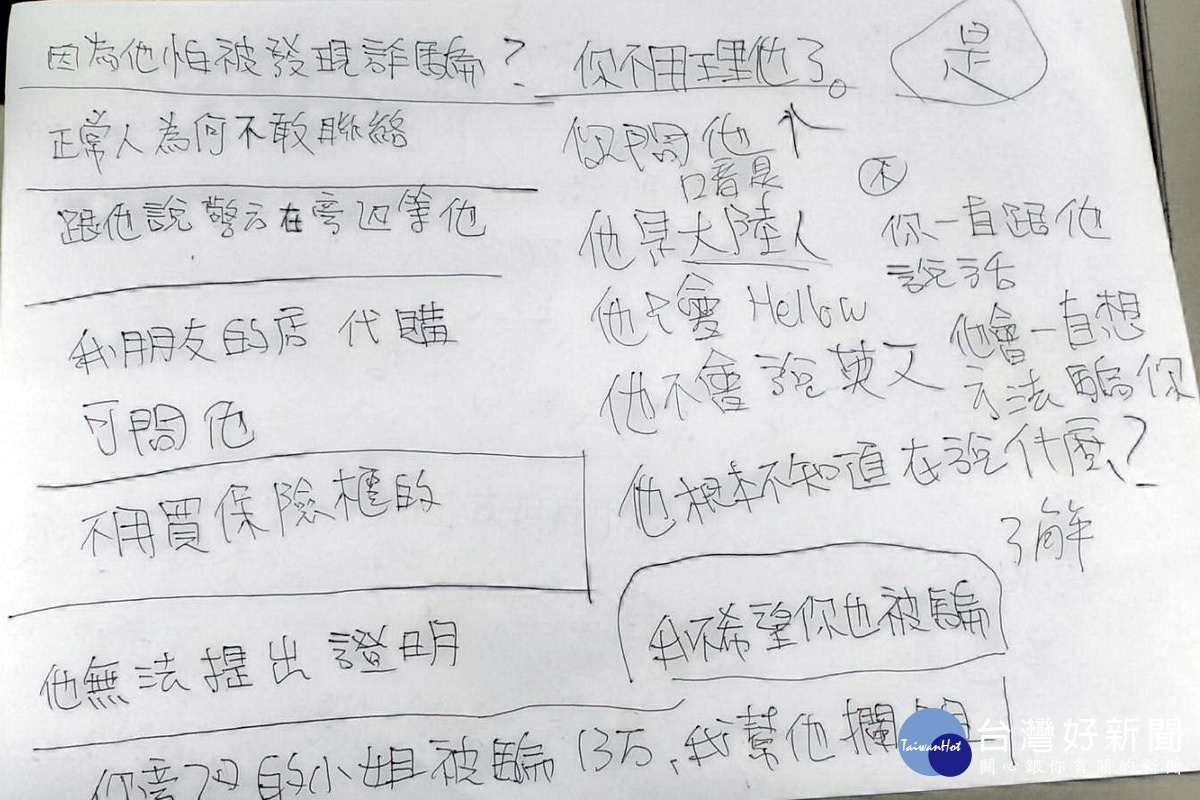 因為他怕被發現詐騙?
正常人為何不敢聯絡
跟他說警方在旁边等他
我朋友的店 代購
可問他
不用買保險櫃的
他無法提出證明
的小姐被騙13万,我幫他攔
你不用理他了。
是
你問他
口音是
他是大陸人
不
你一直跟他
說話
他只會 Hellow
他會一直想
方法騙你
他不會說英文
他根本不知道在說什麼?
了解
我不希望你也被騙
TaiwanHot
台灣好新聞
關心跟你有關的新聞